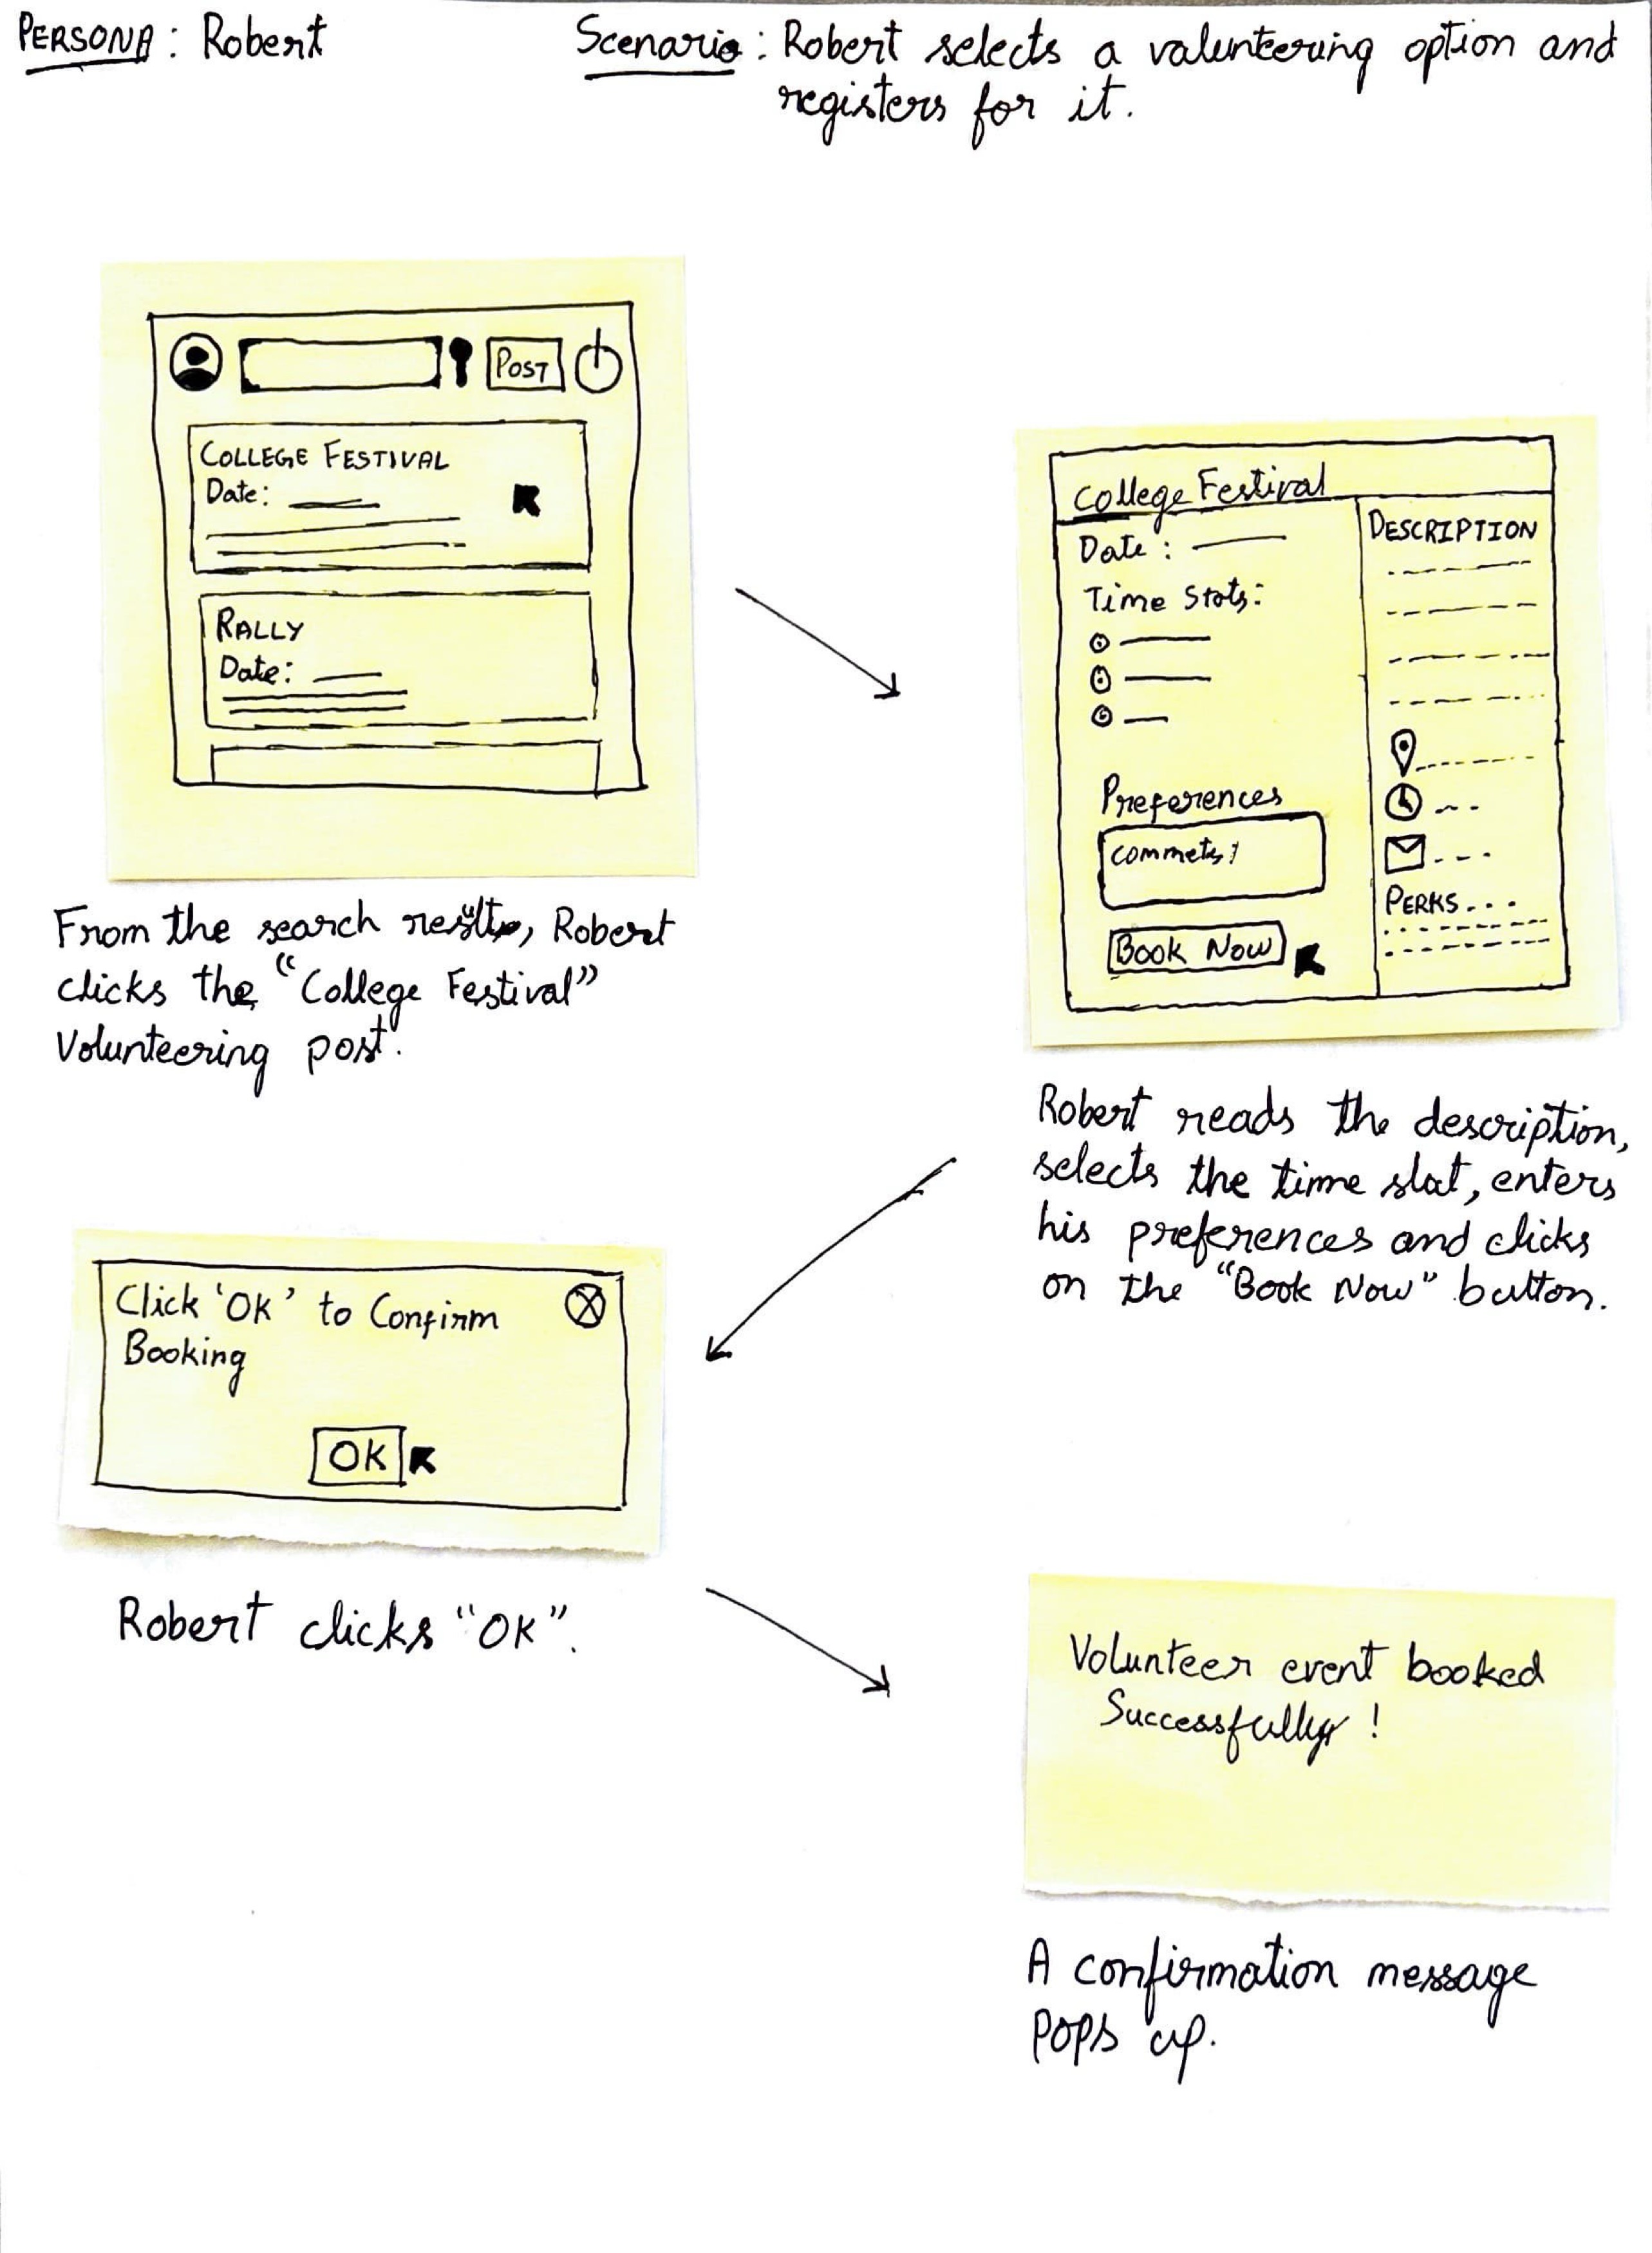 PERSONA : Robert
Scenario : Robert selects a valunteering option and
registers for it.
POST
COLLEGE FESTIVAL
Date:
RALLY
Date:
From the search results, Robert
clicks the "College Festival"
Volunteering post.
College Festival
Date :
Time Slots:
Preferences
Commets!
Book Now
DESCRIPTION
PERKS...
Robert reads the description,
selects the time slot, enters
his preferences and clicks
on the "Book Now" button.
Click 'OK' to Confirm
Booking
OK
Robert clicks "OK".
Volunteer event booked
Successfully!
A confirmation message
Pops up.